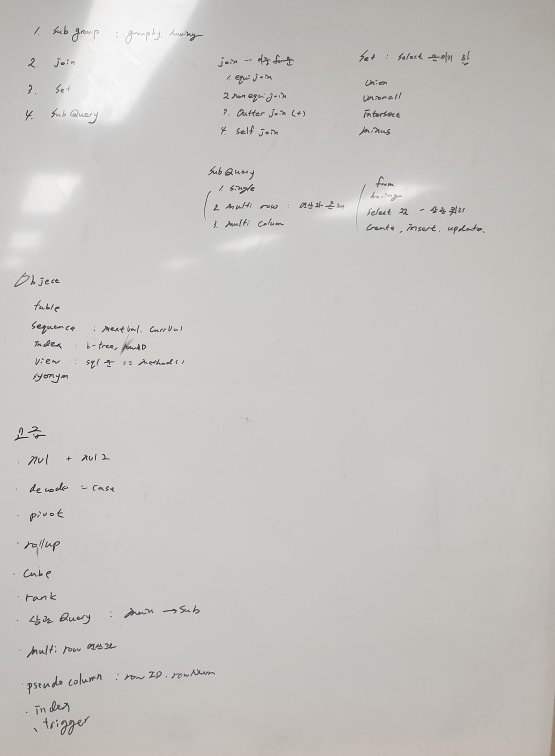 1. Sub group : groupby, having
2. Join
3. Set
4. SubQuery
join - 
1. equi join
2. non equi join
3. Outter join (+)
4. Self join
Set : Select
Union
Unionall
intersect
minus
SubQuery
1. Single
2. multi row : 연산자
3. multi Column
from
having
Select 절 -
Create, insert, update.
Object
table
Sequence : nextval. CurrVal
Index : b-tree, rowID
View : sql 문 == method()
Syonym
고급
· nvl + nvl2
· decode = case
· pivot
· rollup
· Cube
· rank
· 상관 Query : main → Sub
· multi row 연산자
· pseudo column : row ID. rowNum
· index
· trigger